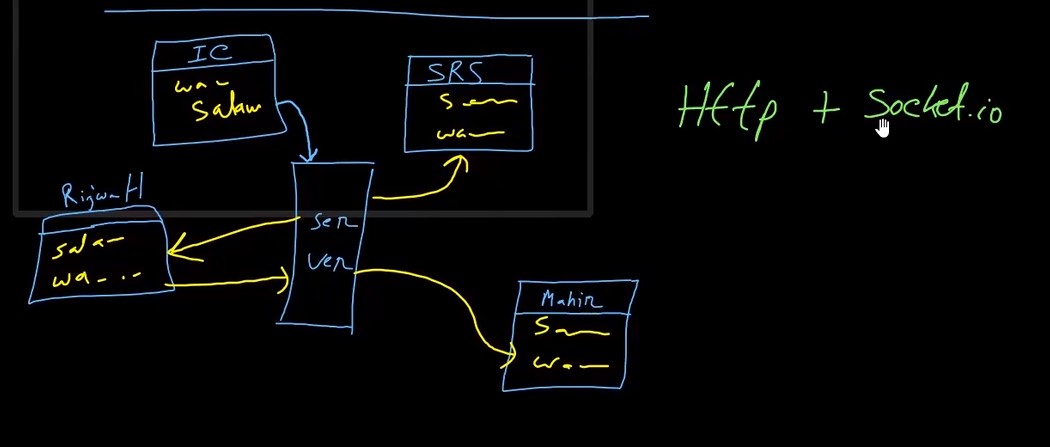 IC
wa-
salam
SRS
S
wa
Http + Socket.io
Rijwan
sala-
wa-..
Ser
ver
Mahir
S
wa